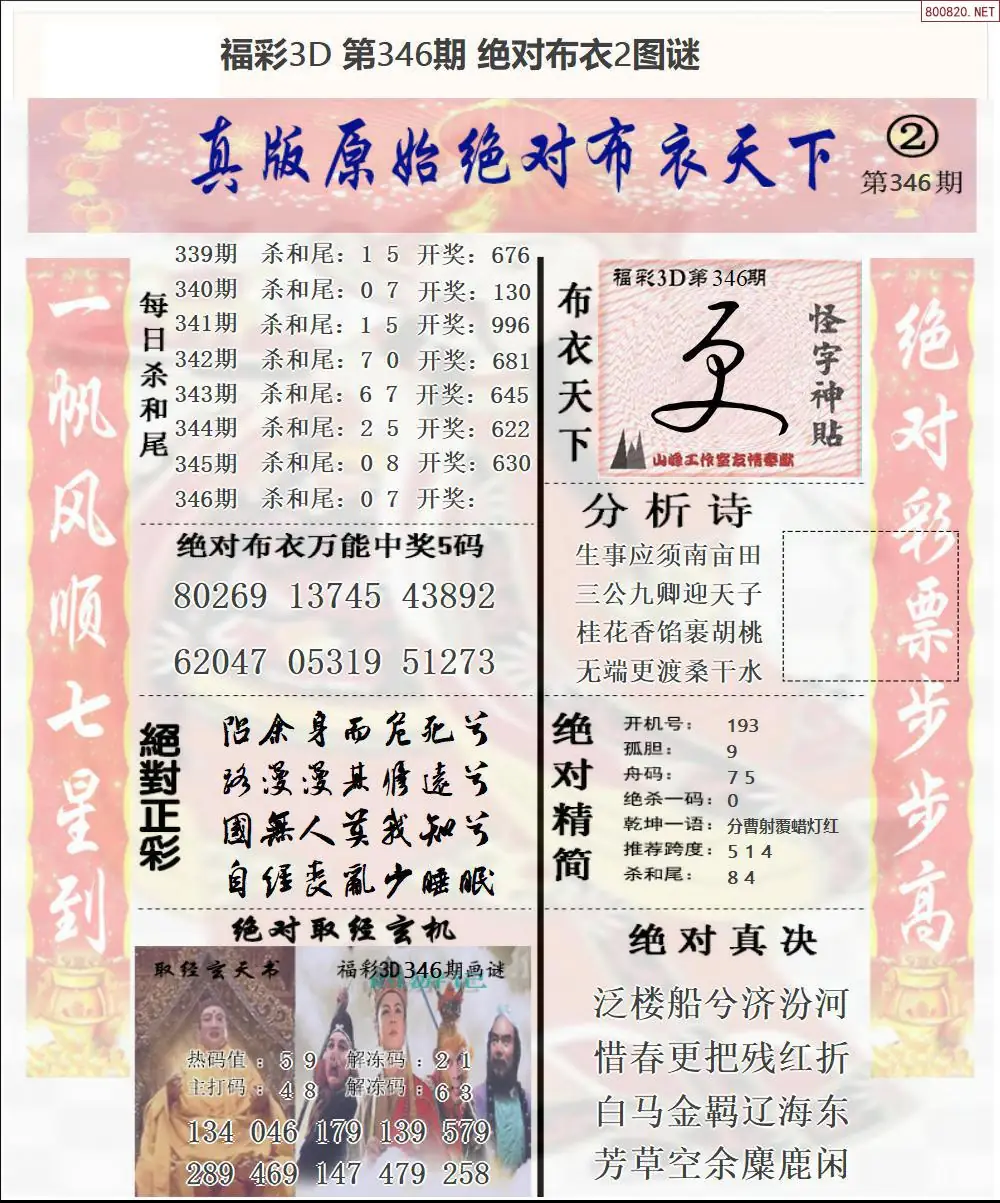 800820.NET
福彩3D 第346期 绝对布衣2图谜
真版原始绝对布衣天下
②
第346期
一帆风顺七星到
每日杀和尾
339期 杀和尾：1 5 开奖：676
340期 杀和尾：0 7 开奖：130
341期 杀和尾：1 5 开奖：996
342期 杀和尾：7 0 开奖：681
343期 杀和尾：6 7 开奖：645
344期 杀和尾：2 5 开奖：622
345期 杀和尾：0 8 开奖：630
346期 杀和尾：0 7 开奖：
绝对布衣万能中奖5码
80269 13745 43892
62047 05319 51273
絕對正彩
阽余身而危死兮
路漫漫其修遠兮
國無人莫我知兮
自經喪亂少睡眠
绝对取经玄机
取经玄天书
福彩3D346期画谜
热码值：5 9 解冻码：2 1
主打码：4 8 解冻码：6 3
134 046 179 139 579
289 469 147 479 258
布衣天下
福彩3D第346期
怪字神贴
山峰工作室友情奉献
分析诗
生事应须南亩田
三公九卿迎天子
桂花香馅裹胡桃
无端更渡桑干水
绝对精简
开机号：193
孤胆：9
舟码：7 5
绝杀一码：0
乾坤一语：分曹射覆蜡灯红
推荐跨度：5 1 4
杀和尾：8 4
绝对真决
泛楼船兮济汾河
惜春更把残红折
白马金羁辽海东
芳草空余麋鹿闲
绝对彩票步步高